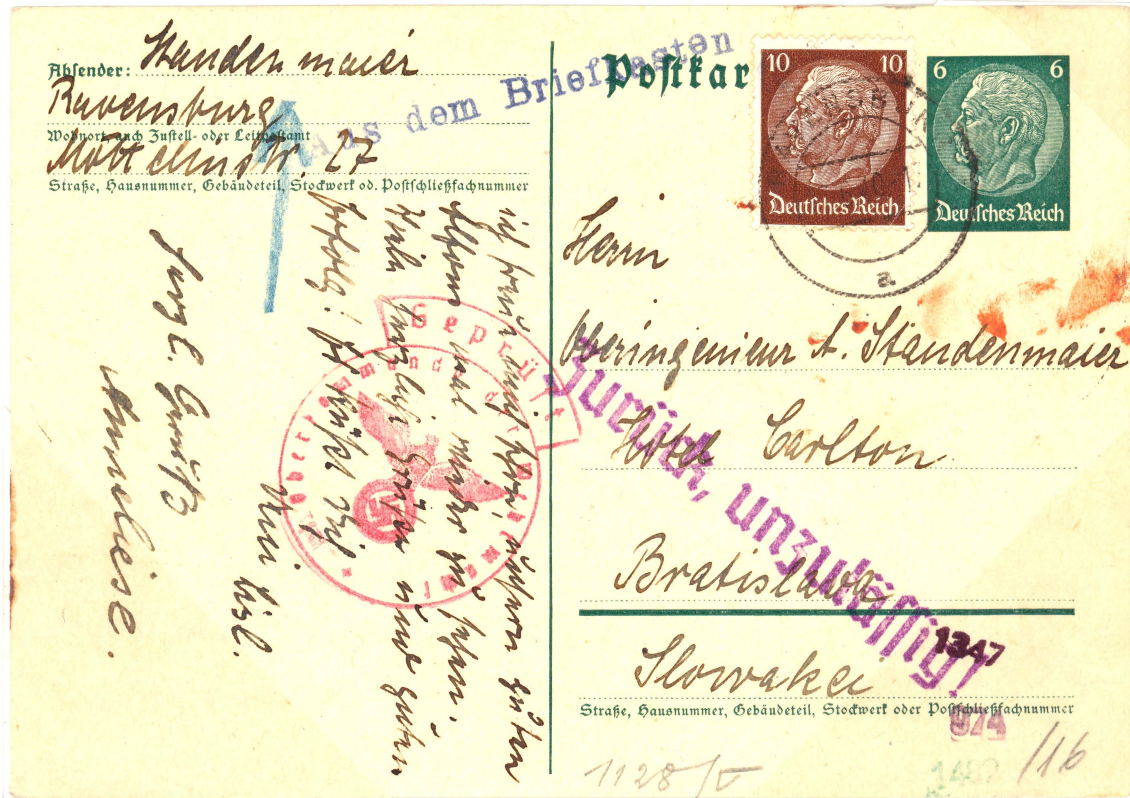 Absender: Standenmaier
Ravensburg
Wohnort, auch Zustell- oder Leitpostamt
Möttelinstr. 27
Straße, Hausnummer, Gebäudeteil, Stockwerk od. Postschließfachnummer
Aus dem Briefkasten
Postkar
10 10
Deutsches Reich
6 6
Deutsches Reich
a
Herrn
Oberingenieur A. Standenmaier
Hotel Carlton
Bratislava
Slowakei
Straße, Hausnummer, Gebäudeteil, Stockwerk oder Postschließfachnummer
Zurück, unzulässig!
1347
974
1482
/16
1128/V
Geprüft
Oberkommando der Wehrmacht
ich freue mich schon, unseren guten
mal wieder zu sehen.
herzliche Grüße und guten
Erfolg! Es küßt Dich
Dein Lisl.
Herzl. Gruß
Anneliese.